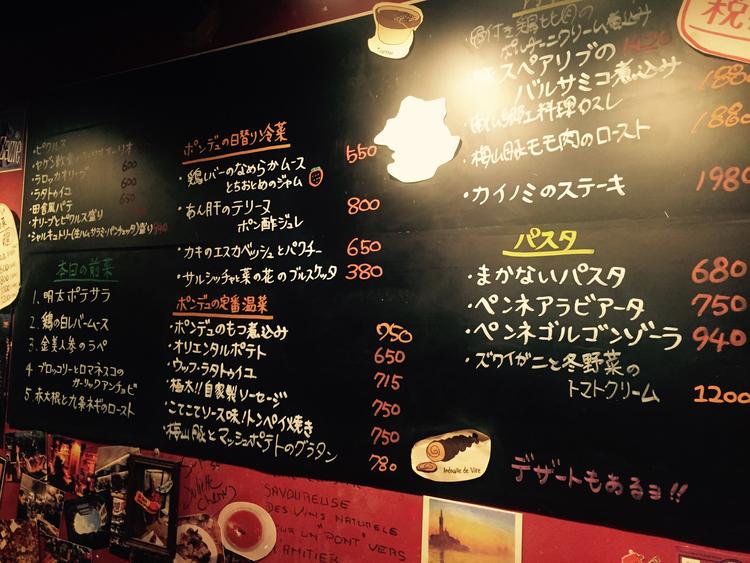 ・ピクルス
600
・ラロッカオリーブ
600
・ラタトゥイユ
600
・田舎風パテ
・オリーブとピクルス盛り
・シャルキュトリー(生ハムサラミ・パンチェッタ)盛り 940
本日の前菜
1. 明太ポテサラ
2. 鶏の白レバームース
3. 金美人参のラペ
4 ブロッコリーとロマネスコの
ガーリックアンチョビ
5. 赤大根と九条ネギのロースト
ポンデュの日替り冷菜
・鶏レバーのなめらかムース 550
とちおとめのジャム
・あん肝のテリーヌ 800
ポン酢ジュレ
・カキのエスカベッシュとパクチー 650
・サルシッチャと菜の花のブルスケッタ 380
ポンデュの定番温菜
・ポンデュのもつ煮込み 950
・オリエンタルポテト 650
・ウッフ・ラタトゥイユ 715
・極太!!自家製ソーセージ 750
・こてこてソース味!トンペイ焼き 750
・梅山豚とマッシュポテトのグラタン 780
・骨付き鶏もも肉の
ポルチーニクリーム煮込み
スペアリブの
バルサミコ煮込み 1880
1880
・梅山豚モモ肉のロースト
・カイノミのステーキ 1980
パスタ
・まかないパスタ 680
・ペンネアラビアータ 750
・ペンネゴルゴンゾーラ 940
・ズワイガニと冬野菜の
トマトクリーム 1200
デザートもあるヨ!!
税
SAVOUREUSE
DES VINS NATURELS
SUR UN "PONT" VERS
L'AMITIER